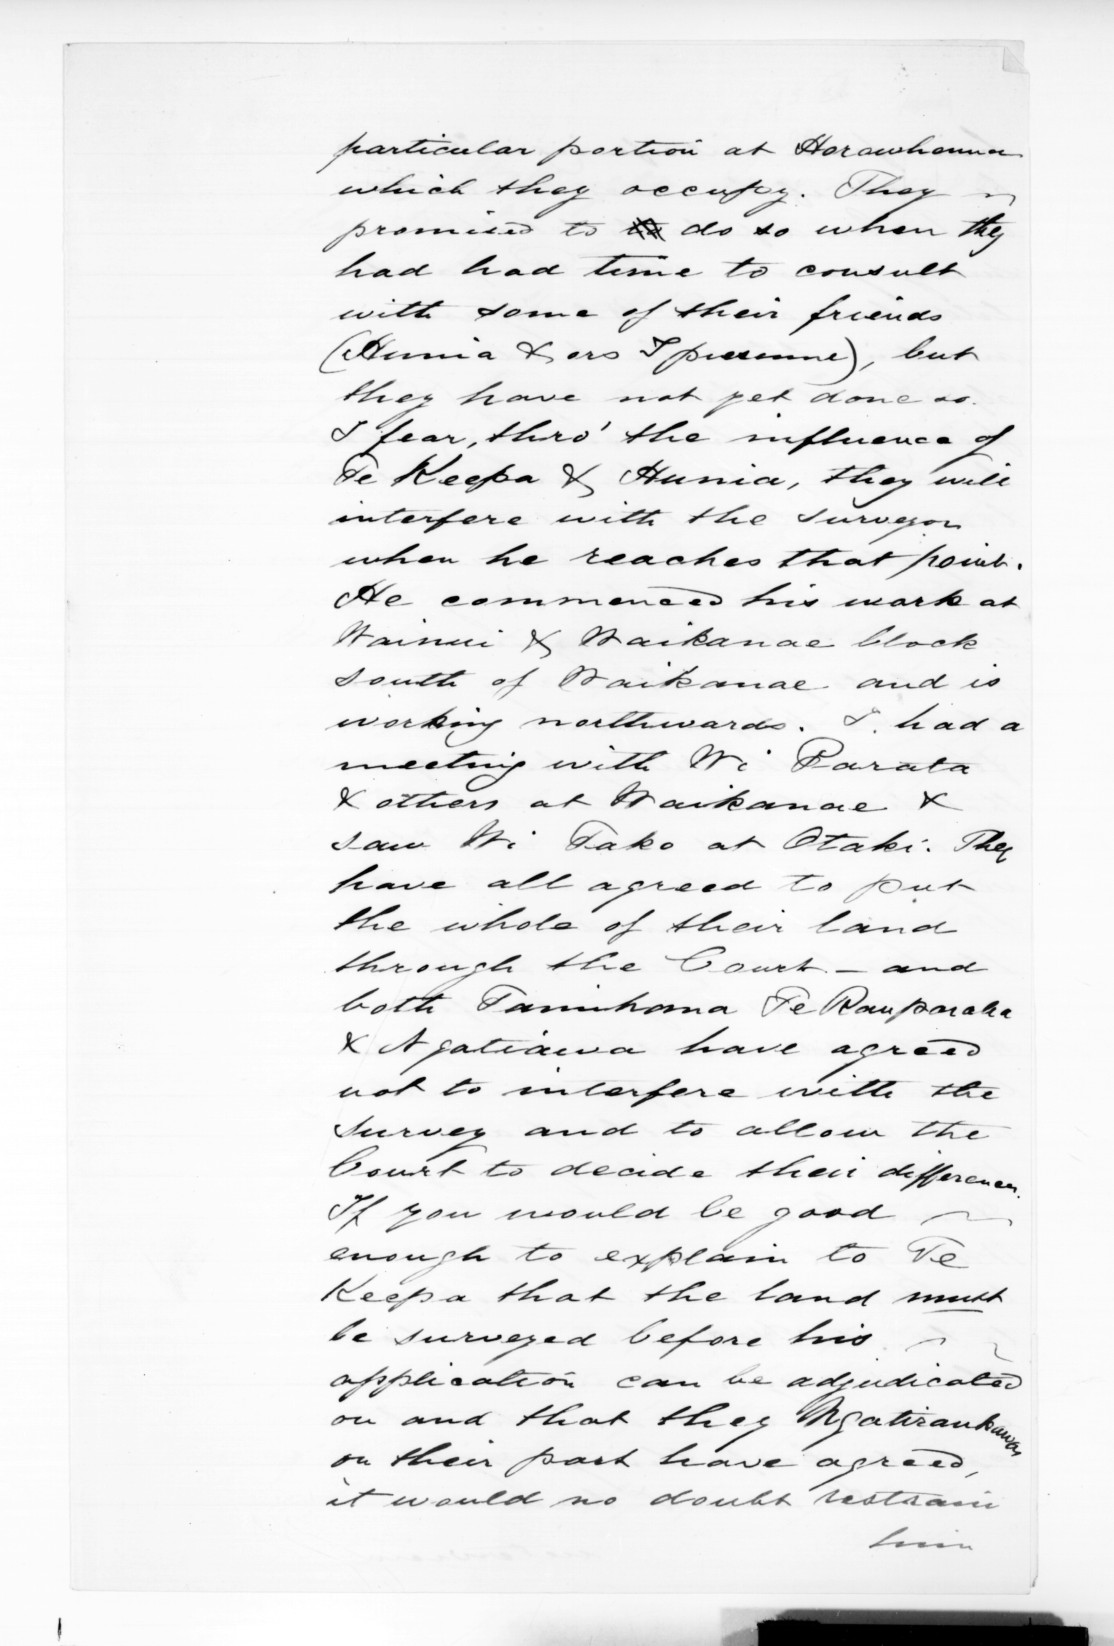 particular portion at Horowhenua
which they occupy. They
promised to do so when they
had had time to consult
with some of their friends
(Hunia & ors I presume), but
they have not yet done so.
I fear, thro' the influence of
Te Keepa & Hunia, they will
interfere with the surveyor
when he reaches that point.
He commenced his work at
Wainui & Waikanae block
south of Waikanae and is
working northwards. I had a
meeting with Wi Parata
& others at Waikanae &
saw Wi Tako at Otaki. They
have all agreed to put
the whole of their land
through the Court – and
both Tamihana Te Rauparaha
& Ngatiawa have agreed
not to interfere with the
survey and to allow the
Court to decide their differences.
If you would be good
enough to explain to Te
Keepa that the land must
be surveyed before his
application can be adjudicated
on and that they Ngatiraukawas
on their part have agreed,
it would no doubt restrain
him